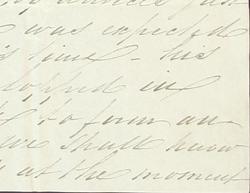 was expected
time - his
dropped in
to form an
we shall know
at the moment